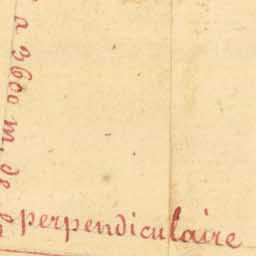 a 3600 m. de l
perpendiculaire